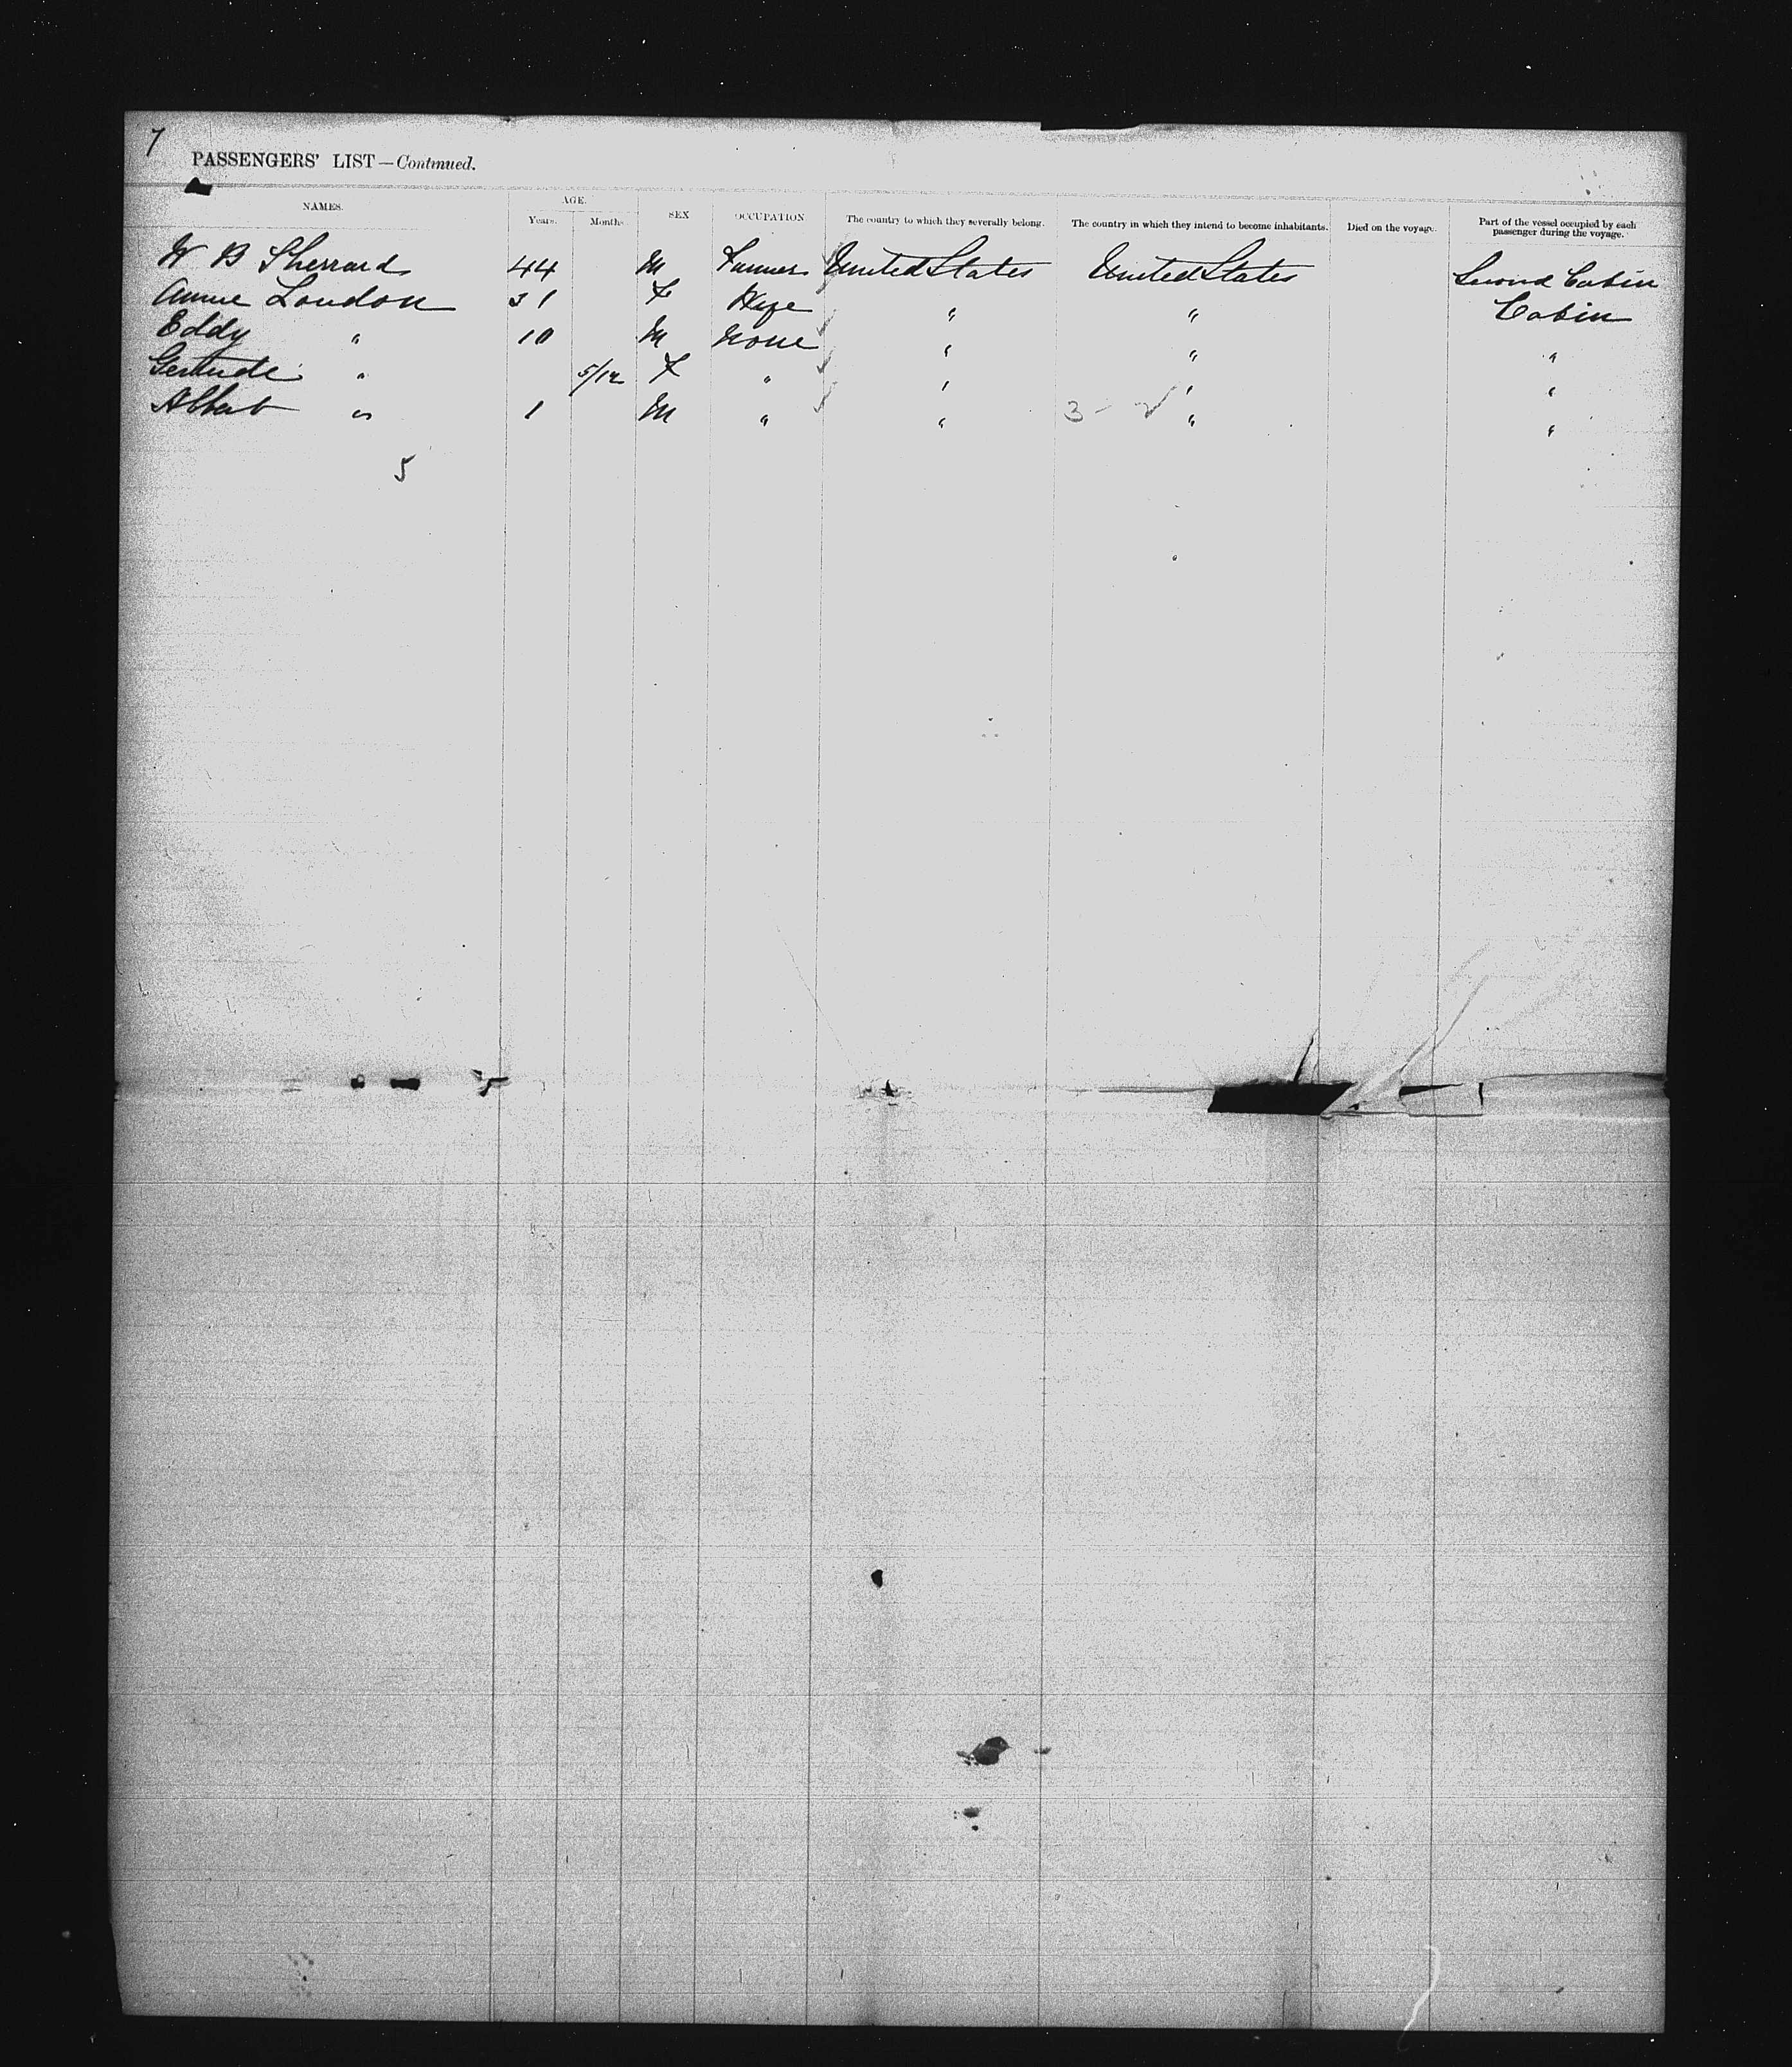 7
PASSENGERS' LIST—Continued.
NAMES. AGE. SEX OCCUPATION The country to which they severally belong. The country in which they intend to become inhabitants. Died on the voyage. Part of the vessel occupied by each passenger during the voyage.
Years. Months
W B Sherrard 44 M Farmer United States United States Second Cabin
Annie London 31 F Wife " " Cabin
Eddy " 10 M None " " "
Gertrude " 5/12 F " " " "
Albert " 1 M " " 3 - " "
5